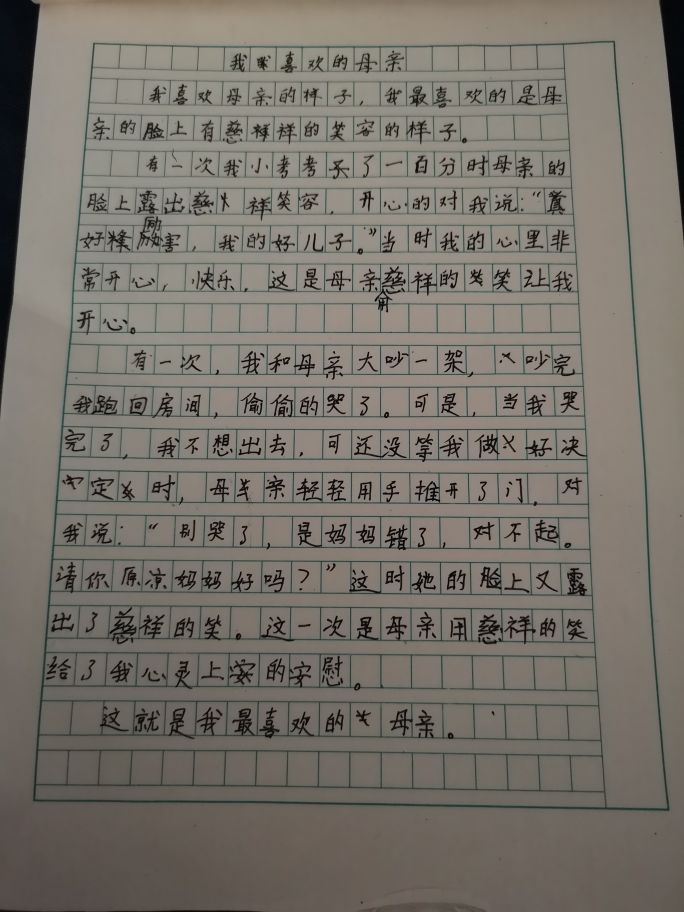 我喜欢的母亲
我喜欢母亲的样子，我最喜欢的是母
亲的脸上有慈祥的笑容的样子。
有一次我小考考了一百分时母亲的
脸上露出慈祥笑容，开心的对我说：“真
好厉害，我的好儿子。”当时我的心里非
常开心，快乐，这是母亲慈祥的笑让我
开心。
有一次，我和母亲大吵一架，吵完
我跑回房间，偷偷的哭了。可是，当我哭
完了，我不想出去，可还没等我做好决
定时，母亲轻轻用手推开了门，对
我说：“别哭了，是妈妈错了，对不起。
请你原凉妈妈好吗？”这时她的脸上又露
出了慈祥的笑。这一次是母亲用慈祥的笑
给了我心灵上的安慰。
这就是我最喜欢的母亲。